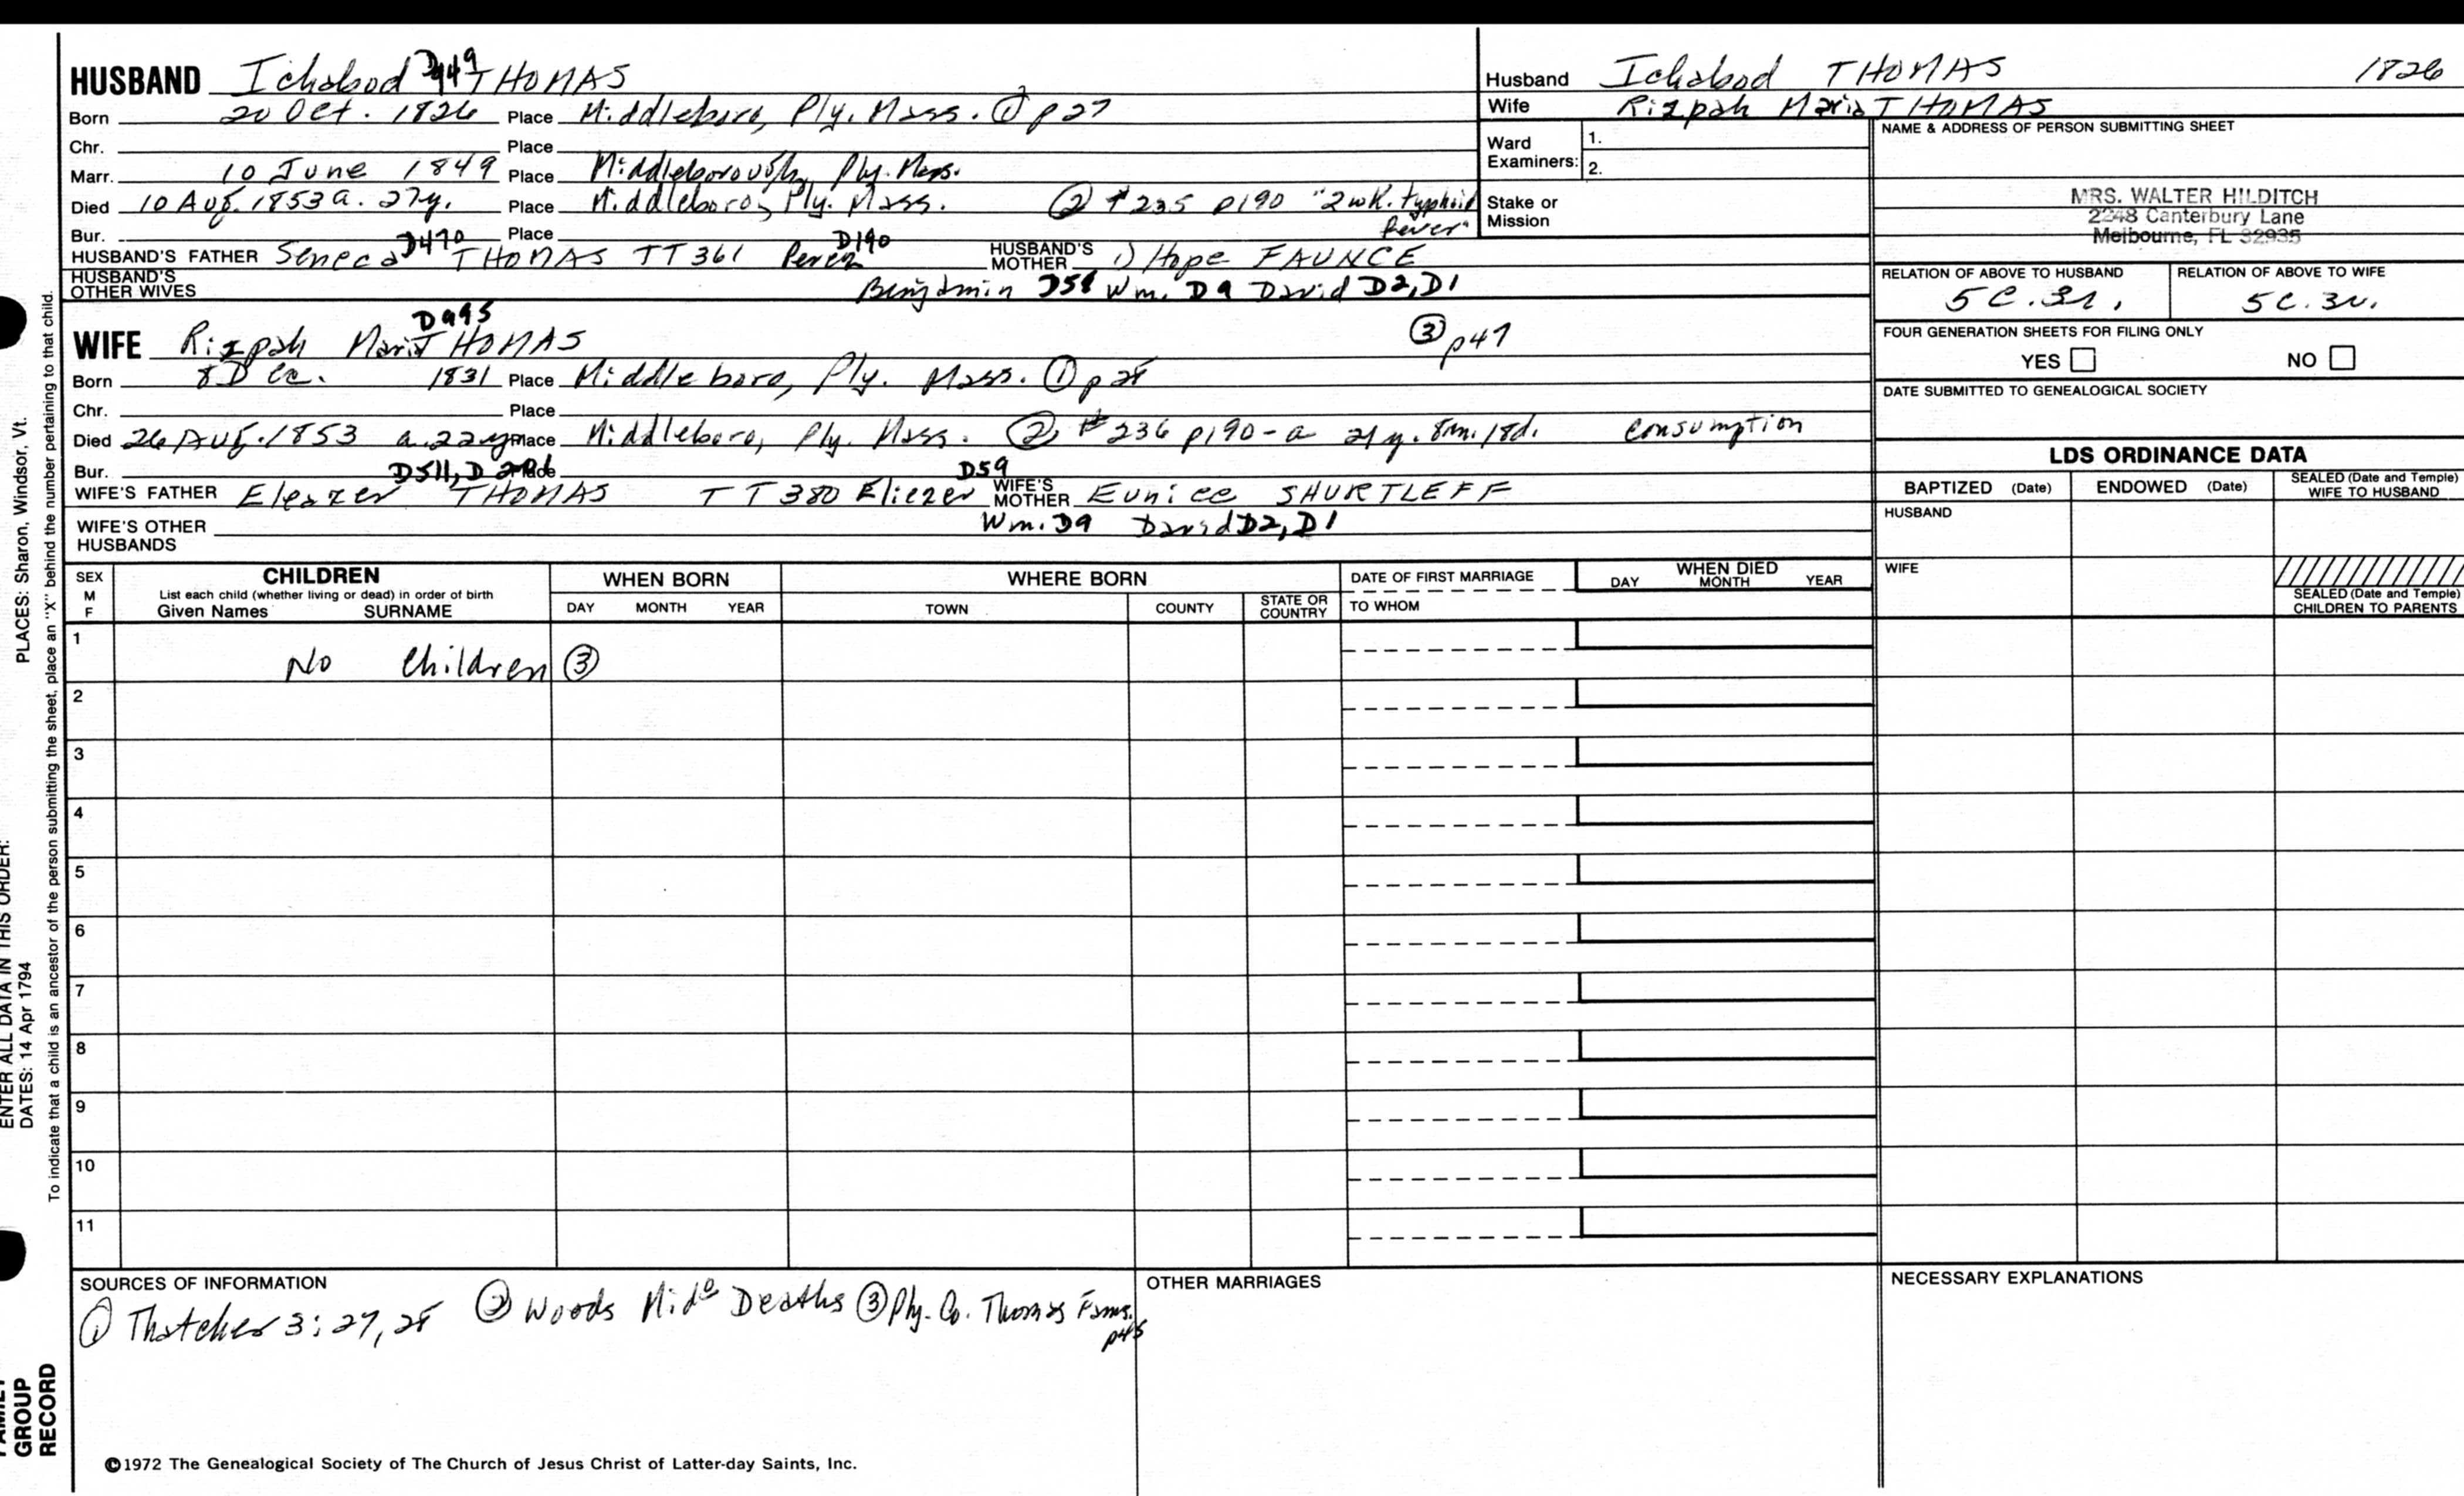 HUSBAND Ichabod D949 THOMAS
Born 20 Oct. 1826 Place Middleboro, Ply. Mass. ① p27
Chr. Place
Marr. 10 June 1849 Place Middleborough, Ply. Mass.
Died 10 Aug. 1853 a. 27y. Place Middleboro, Ply. Mass. ② #235 p190 "2 wk. typhoid fever"
Bur. Place
HUSBAND'S FATHER Seneca D470 THOMAS TT361 Perez D190 HUSBAND'S MOTHER 1) Hope FAUNCE
HUSBAND'S OTHER WIVES Benjamin D58 Wm. D9 David D2, D1
WIFE Rizpah Maria D995 THOMAS ③ p47
Born 8 Dec. 1831 Place Middleboro, Ply. Mass. ① p28
Chr. Place
Died 26 Aug. 1853 a. 22y Place Middleboro, Ply. Mass. ② #236 p190-a 21y. 8m. 18d. consumption
Bur. Place
WIFE'S FATHER Eleazer D511, THOMAS TT380 Eliezer D59 WIFE'S MOTHER Eunice SHURTLEFF
WIFE'S OTHER HUSBANDS Wm. D9 David D2, D1
Husband Ichabod THOMAS 1826
Wife Rizpah Maria THOMAS
Ward Examiners: 1.
2.
Stake or Mission
NAME & ADDRESS OF PERSON SUBMITTING SHEET
MRS. WALTER HILDITCH
2248 Canterbury Lane
Melbourne, FL 32935
RELATION OF ABOVE TO HUSBAND RELATION OF ABOVE TO WIFE
5C.3r. 5C.3r.
FOUR GENERATION SHEETS FOR FILING ONLY
YES NO
DATE SUBMITTED TO GENEALOGICAL SOCIETY
LDS ORDINANCE DATA
BAPTIZED (Date) ENDOWED (Date) SEALED (Date and Temple) WIFE TO HUSBAND
HUSBAND
WIFE
SEALED (Date and Temple) CHILDREN TO PARENTS
SEX M F
CHILDREN
List each child (whether living or dead) in order of birth
Given Names SURNAME
WHEN BORN
DAY MONTH YEAR
WHERE BORN
TOWN COUNTY STATE OR COUNTRY
DATE OF FIRST MARRIAGE
TO WHOM
WHEN DIED
DAY MONTH YEAR
1 No Children ③
2
3
4
5
6
7
8
9
10
11
SOURCES OF INFORMATION
① Thatcher 3:27,28 ② Woods Mido Deaths ③ Ply. Co. Thomas Fams. p46
OTHER MARRIAGES
NECESSARY EXPLANATIONS
©1972 The Genealogical Society of The Church of Jesus Christ of Latter-day Saints, Inc.
PLACES: Sharon, Windsor, Vt.
ENTER ALL DATA IN THIS ORDER:
DATES: 14 Apr 1794
To indicate that a child is an ancestor of the person submitting the sheet, place an "X" behind the number pertaining to that child.
FAMILY
GROUP
RECORD